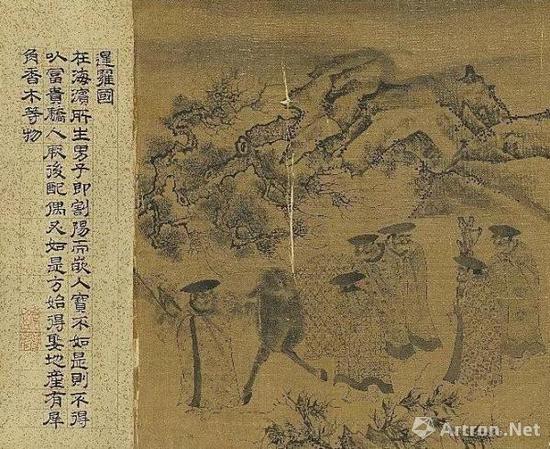 暹羅國
在海濱所生男子即割陽而嵌八寶不如是則不得
以富貴驕人厥後配偶又如是方始得娶地產有犀
角香木等物
Artron.Net